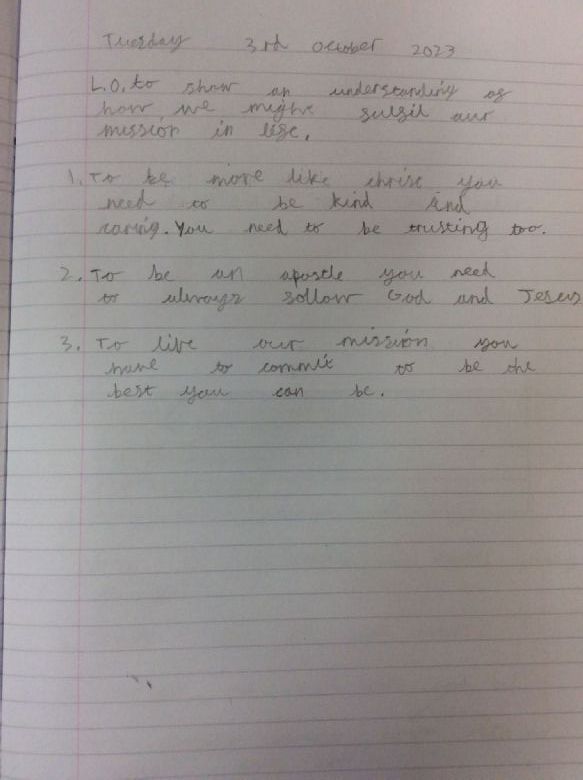 Tuesday 3rd October 2023
L.O. to show an understanding of
how we might fulfil our
mission in life.
1. To be more like christ you
need to be kind and
caring. You need to be trusting too.
2. To be an apostle you need
to always follow God and Jesus
3. To live our mission you
have to commit to be the
best you can be.